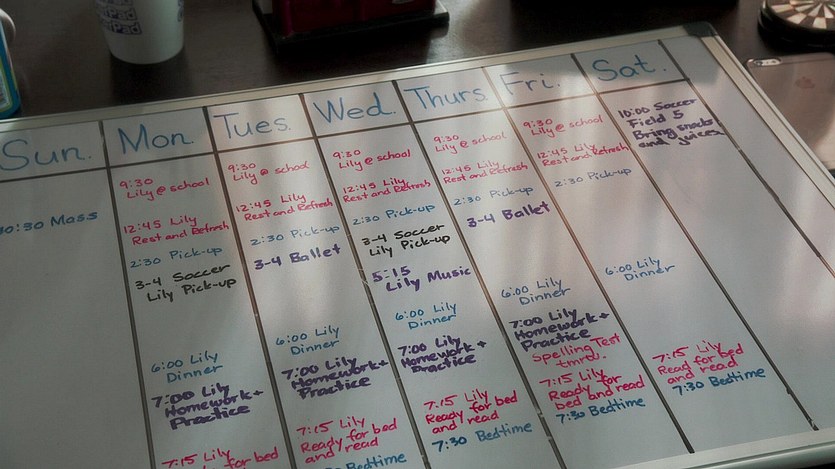 Sun.
10:30 Mass
Mon.
9:30
Lily @ school
12:45 Lily
Rest and Refresh
2:30 Pick-up
3-4 Soccer
Lily Pick-up
6:00 Lily
Dinner
7:00 Lily
Homework +
Practice
7:15 Lily
for bed
Tues.
9:30
Lily @ school
12:45 Lily
Rest and Refresh
2:30 Pick-up
3-4 Ballet
6:00 Lily
Dinner
7:00 Lily
Homework +
Practice
7:15 Lily
Ready for bed
and read
7:30 Bedtime
Wed.
9:30
Lily @ school
12:45 Lily
Rest and Refresh
2:30 Pick-up
3-4 Soccer
Lily Pick-up
5:15
Lily Music
6:00 Lily
Dinner
7:00 Lily
Homework +
Practice
7:15 Lily
Ready for bed
and read
7:30 Bedtime
Thurs.
9:30
Lily @ school
12:45 Lily
Rest and Refresh
2:30 Pick-up
3-4 Ballet
6:00 Lily
Dinner
7:00 Lily
Homework +
Practice
Spelling Test
tmrd.
7:15 Lily
Ready for
bed and read
7:30 Bedtime
Fri.
9:30
Lily @ school
12:45 Lily
Rest and Refresh
2:30 Pick-up
6:00 Lily
Dinner
7:15 Lily
Ready for bed
and read
7:30 Bedtime
Sat.
10:00 Soccer
Field 5
Bring snacks
& juices